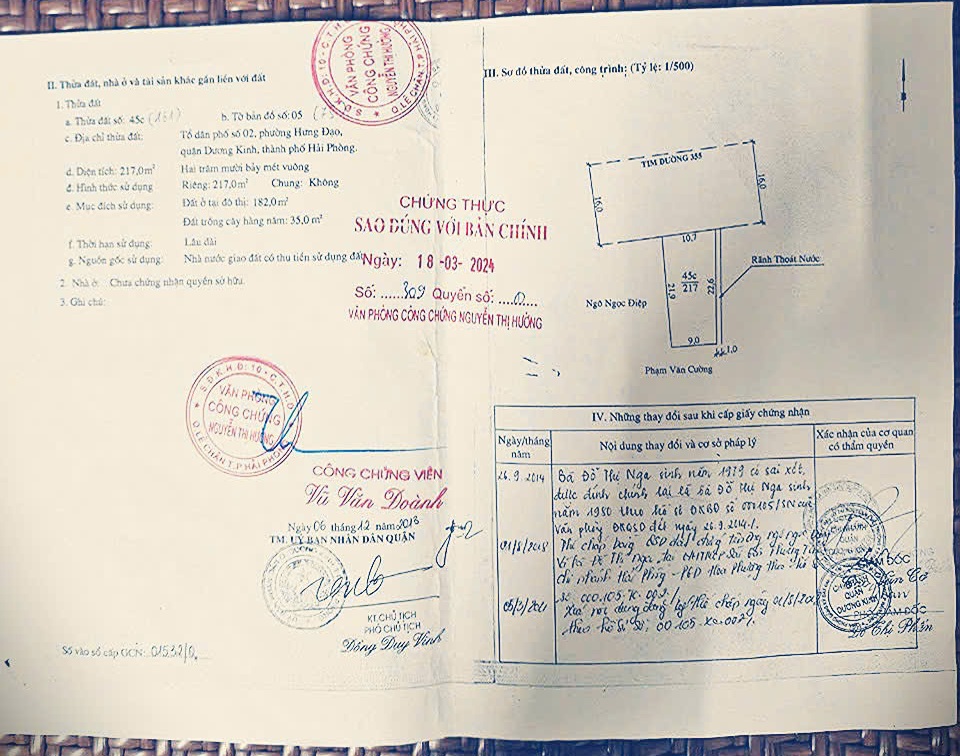 II. Thửa đất, nhà ở và tài sản khác gắn liền với đất
1. Thửa đất
a. Thửa đất số: 45c (161) b. Tờ bản đồ số: 05
c. Địa chỉ thửa đất: Tổ dân phố số 02, phường Hưng Đạo,
quận Dương Kinh, thành phố Hải Phòng.
d. Diện tích: 217,0m² Hai trăm mười bảy mét vuông
đ. Hình thức sử dụng Riêng: 217,0m² Chung: Không
e. Mục đích sử dụng: Đất ở tại đô thị: 182,0m²
Đất trồng cây hàng năm: 35,0 m²
f. Thời hạn sử dụng: Lâu dài
g. Nguồn gốc sử dụng: Nhà nước giao đất có thu tiền sử dụng đất
2. Nhà ở: Chưa chứng nhận quyền sở hữu.
3. Ghi chú:
S.Đ.K.H.Đ: 10 - C.T.H.D
VĂN PHÒNG
CÔNG CHỨNG
NGUYỄN THỊ HƯỜNG
Q.LÊ CHÂN T.P HẢI PHÒNG
CHỨNG THỰC
SAO ĐÚNG VỚI BẢN CHÍNH
Ngày: 18 -03- 2024
Số: ......309 Quyển số: ....0......
VĂN PHÒNG CÔNG CHỨNG NGUYỄN THỊ HƯỜNG
S.Đ.K.H.Đ: 10 - C.T.H.D
VĂN PHÒNG
CÔNG CHỨNG
NGUYỄN THỊ HƯỜNG
Q.LÊ CHÂN T.P HẢI PHÒNG
CÔNG CHỨNG VIÊN
Vũ Văn Doành
Ngày 06 tháng 12 năm 2013
TM. UỶ BAN NHÂN DÂN QUẬN
KT.CHỦ TỊCH
PHÓ CHỦ TỊCH
Đồng Duy Vinh
Số vào sổ cấp GCN: 01532/0
III. Sơ đồ thửa đất, công trình: (Tỷ lệ: 1/500)
TIM ĐƯỜNG 355
16,0
16,0
10,7
Rãnh Thoát Nước
45c
217
21,9
22,6
Ngô Ngọc Điệp
9,0
1,0
Phạm Văn Cường
IV. Những thay đổi sau khi cấp giấy chứng nhận
Ngày/tháng năm
Nội dung thay đổi và cơ sở pháp lý
Xác nhận của cơ quan có thẩm quyền
26.9.2014 Bà Đỗ Thị Nga sinh năm 1979 có sai xót,
được đính chính lại là bà Đỗ Thị Nga sinh
năm 1980 theo hồ sơ ĐKBĐ số 000105/
Văn phòng ĐKQSD đất ngày 26.9.2014.
01/8/2018 Thế chấp bằng QSD đất
chi nhánh Hải Phòng - PGD Hoa Phượng theo hồ sơ
số 000.105.
05/3/2021 Xóa nội dung đăng ký thế chấp ngày 01/8/201
theo hồ sơ số: 00105
CHI NHÁNH
QUẬN
DƯƠNG KINH
GIÁM ĐỐC
QUẬN
DƯƠNG KINH
GIÁM ĐỐC